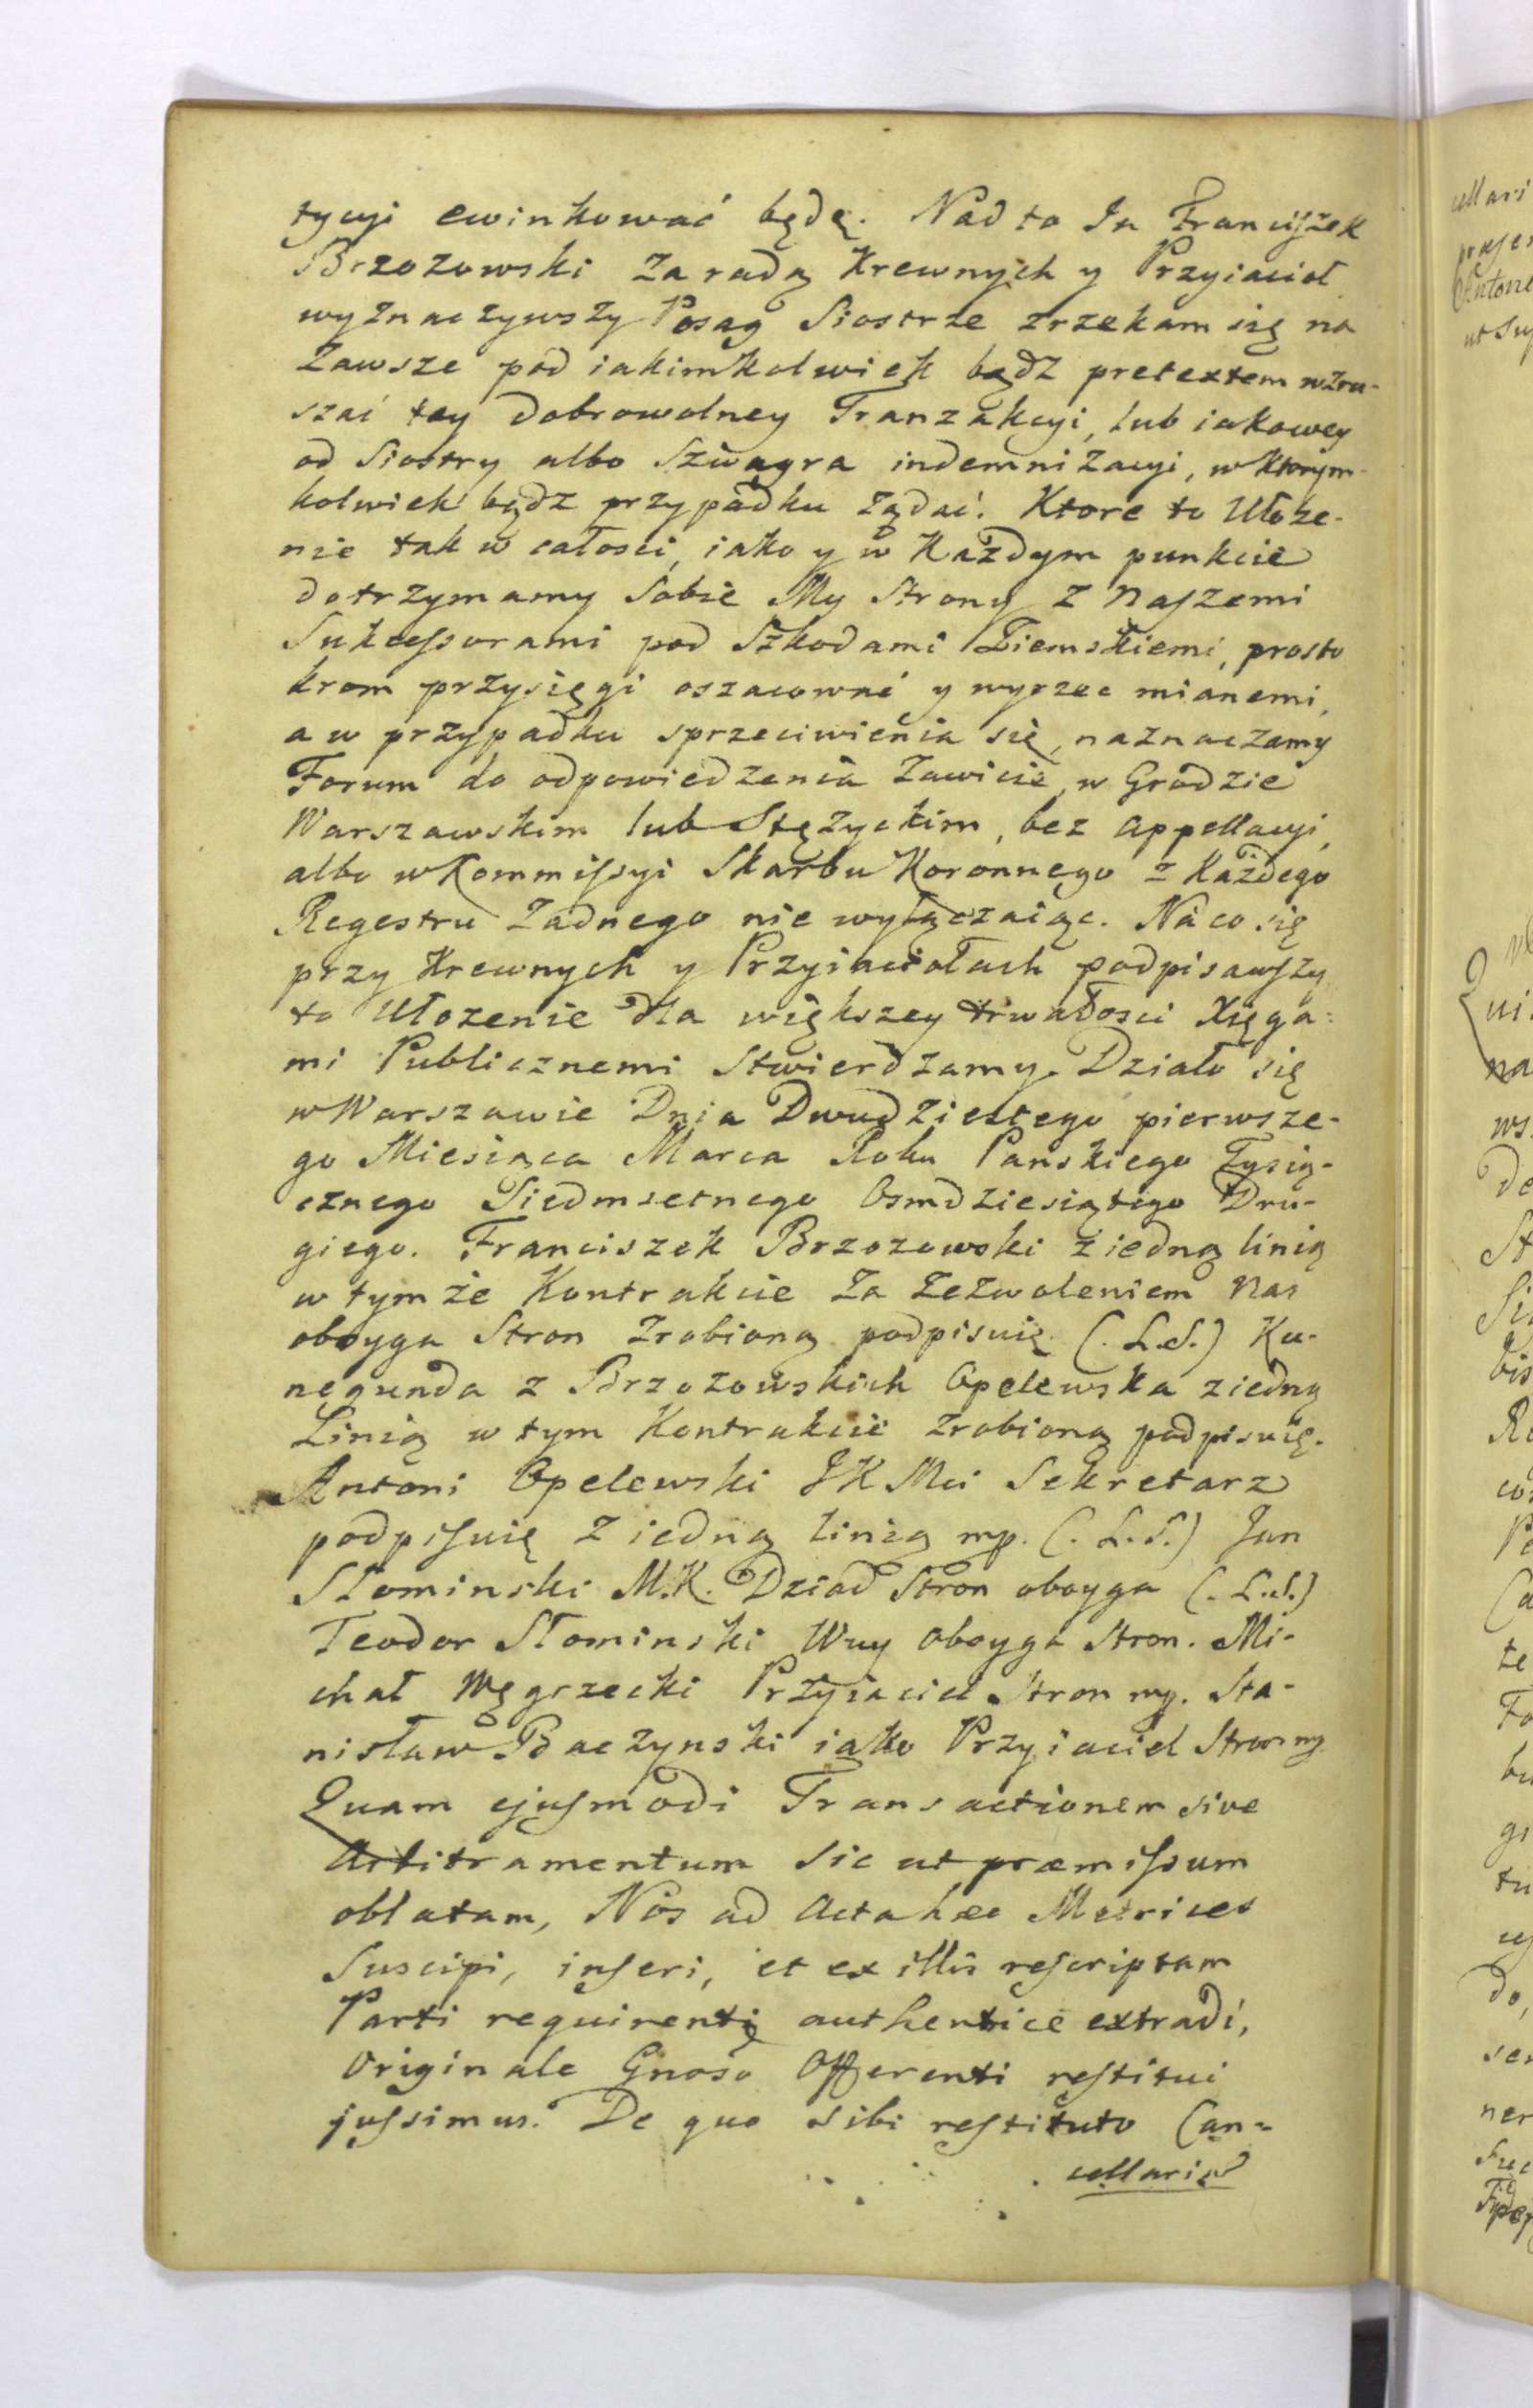 tycyi ewinkować będę. Nad to Ja Franciszek
Brzozowski za radą Krewnych y Przyiacioł
wyznaczywszy Posag Siostrze zrzekam się na
Zawsze pod iakimkolwiek bądz pretextem wzru-
szać tey dobrowolney Tranzakcyi, lub iakowey
od Siostry albo Szwagra indemnizacyi, w ktorym-
kolwiek bądz przypadku żądać. Ktore to Ułoże-
nie tak w całosci, iako y w Każdym punkcie
dotrzymamy Sobie My Strony z Naszemi
Sukcessorami pod Szkodami Ziemskiemi, prosto
krom przysięgi oszacowné y wyrzec mianemi,
a w przypadku sprzeciwienia się, naznaczamy
Forum do odpowiedzenia Zawicie, w Grodzie
Warszawskim lub Stężyckim, bez Appellacyi,
albo w Kommissyi Skarbu Koronnego z Każdego
Regestru Żadnego nie wyłączaiąc. Na co się
przy Krewnych y Przyiaciołach podpisawszy
to Ułozenie dla większey trwałosci Xięga-
mi Publicznemi Stwierdzamy. Działo się
w Warszawie Dnia Dwudziestego pierwsze-
go Miesiąca Marca Roku Panskiego Tysią-
cznego Siedmsetnego Osmdziesiątego Dru-
giego. Franciszek Brzozowski z iedną linią
w tymże Kontrakcie Za Zezwoleniem Nas
oboyga Stron Zrobioną podpisuię. (. L.S.) Ku-
negunda z Brzozowskich Opelewska z iedną
Linią w tym Kontrakcie Zrobioną podpisuię.
Antoni Opelewski JK Mci Sekretarz
podpisuię z iedną linią mp. (. L.S.) Jan
Słominski M.K. Dziad Stron oboyga (. L.S.)
Teodor Słominski Wuy oboyga Stron. Mi-
chał Węgrzecki Przyiaciel Stron mp. Sta-
nisław Baczynski iako Przyiaciel Stron mp.
Quam ejusmodi Transactionem sive
Arbitramentum sic ut præmissum
oblatam, Nos ad Acta hæc Metrices
Suscipi, inseri, et ex illis rescriptam
Parti requirenti authentice extradi,
Originale Gnoso Offerenti restitui
jussimus. De quo sibi restituto Can-
cellaria